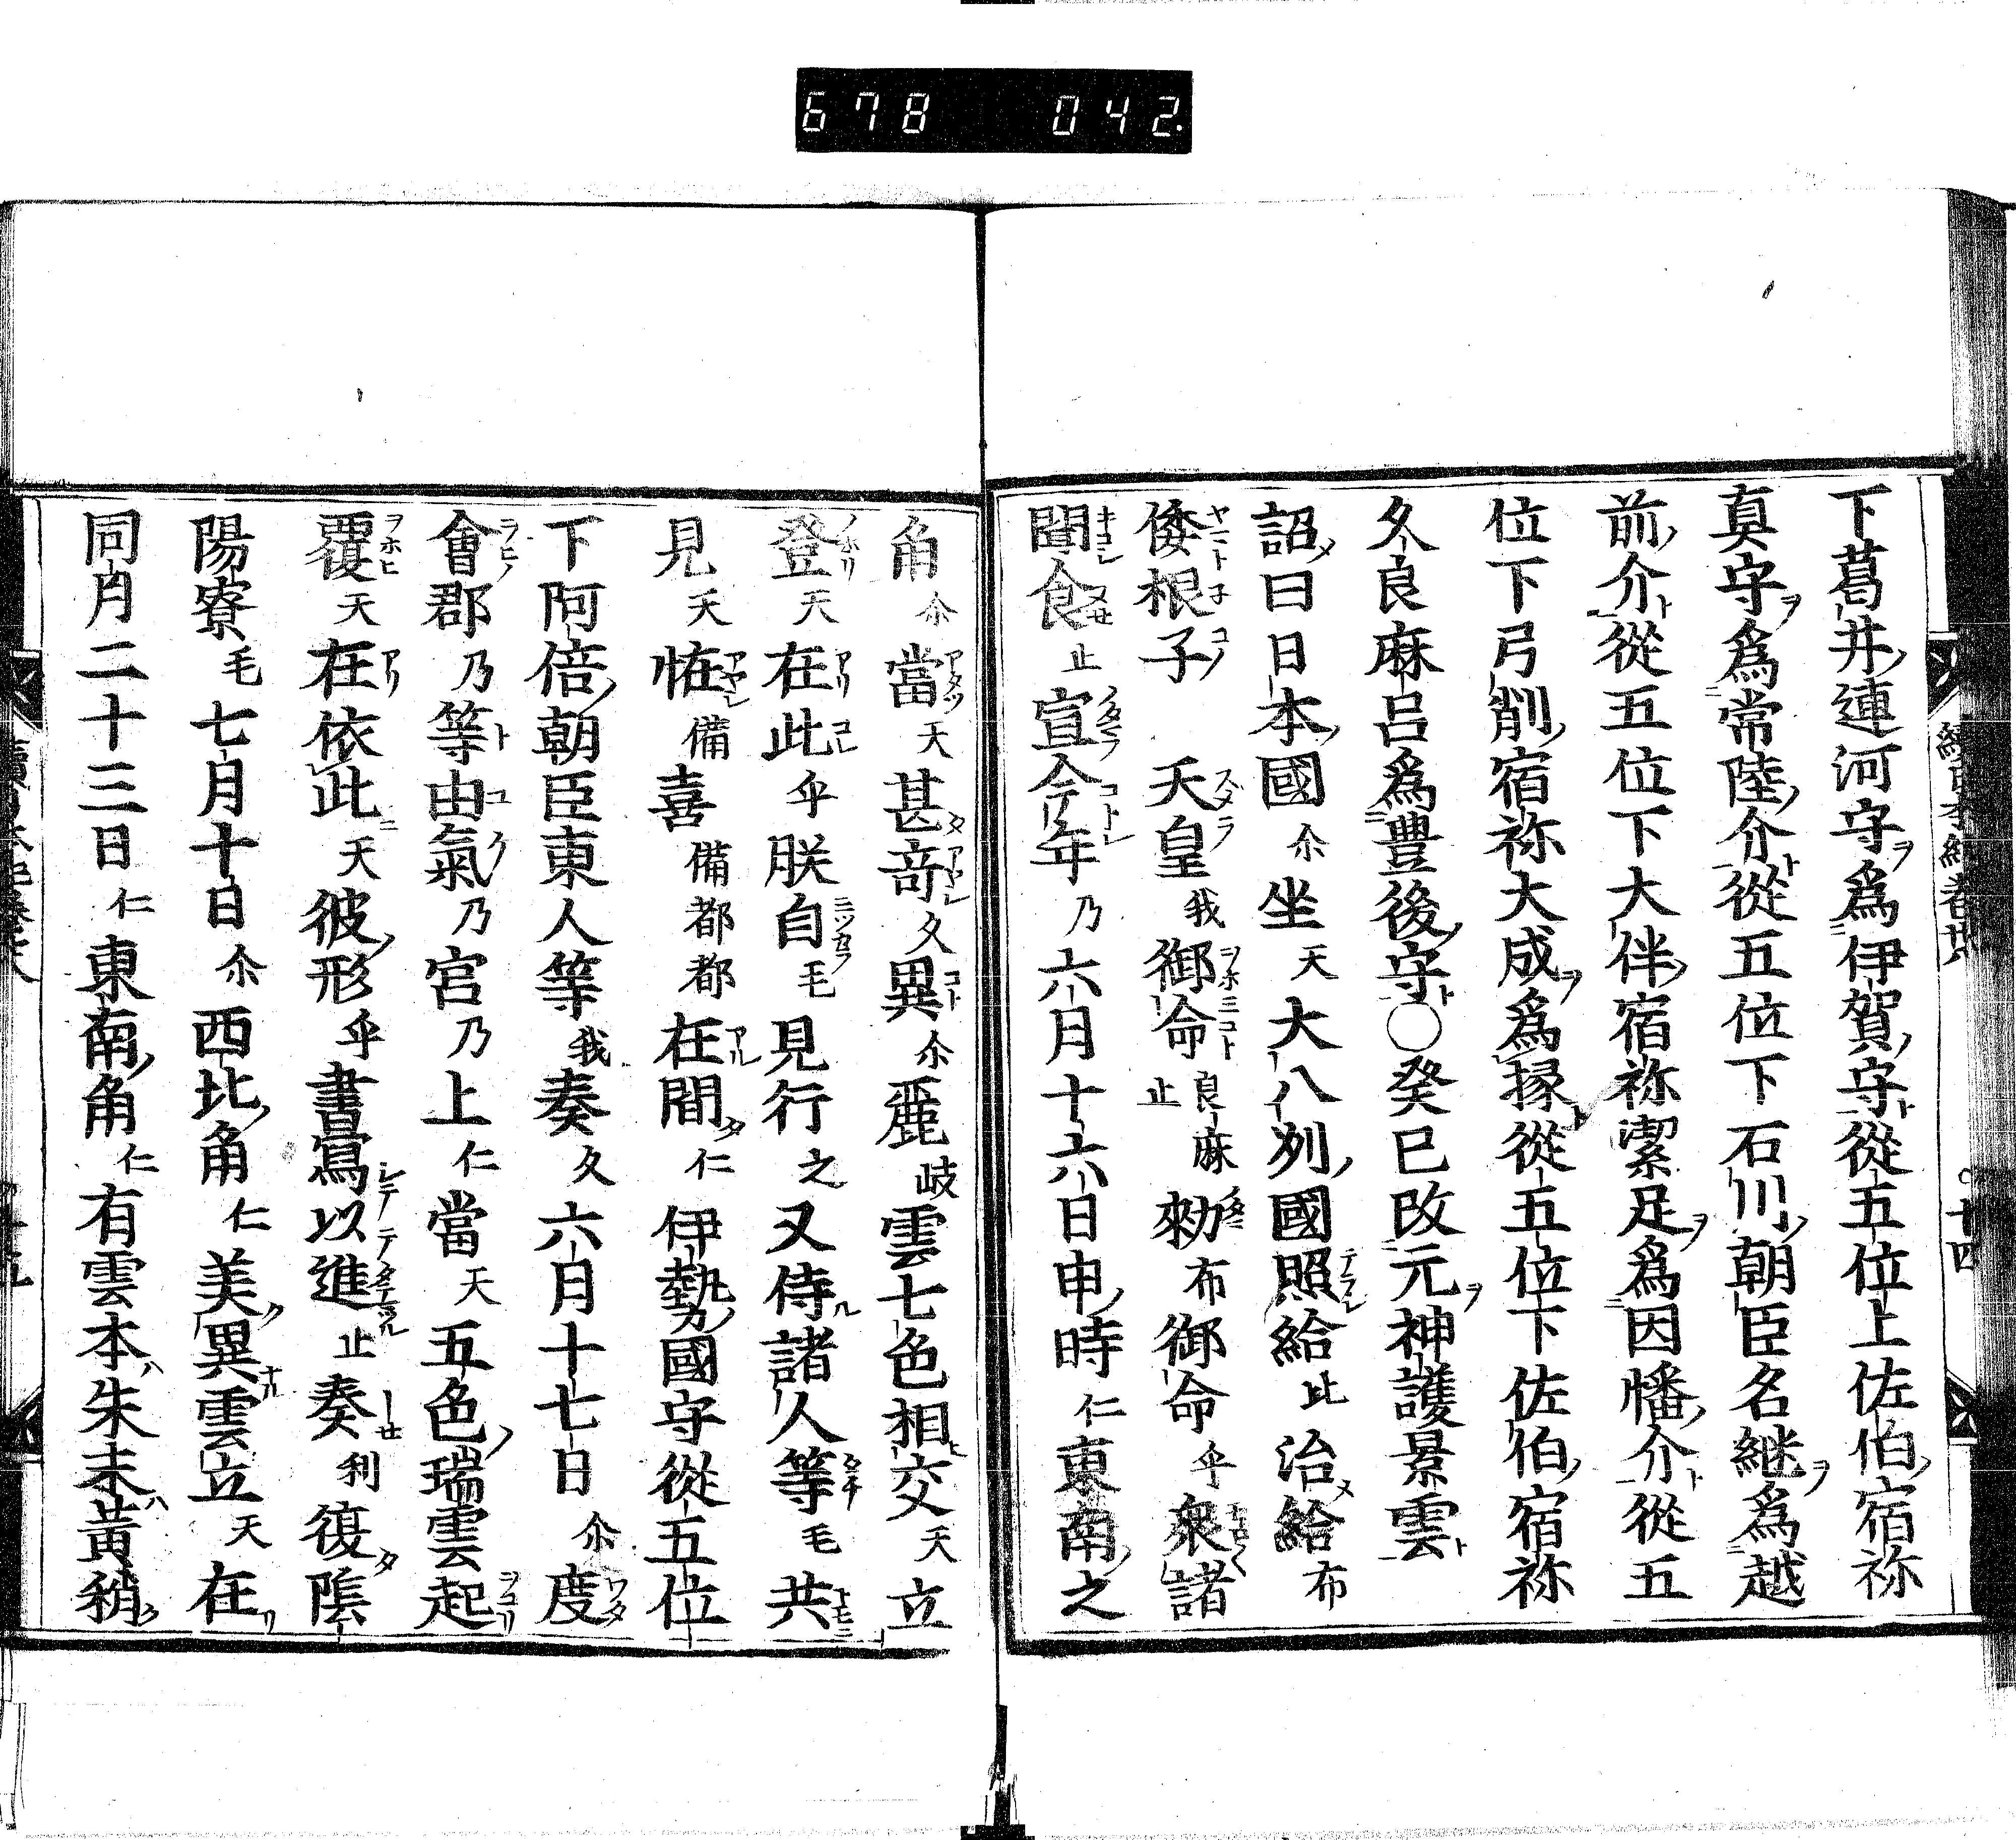 678 042.
下葛井連河守為伊賀守從五位上佐伯宿祢
真守為常陸介從五位下石川朝臣名継為越
前介從五位下大伴宿祢潔足為因幡介從五
位下弓削宿祢大成為掾從五位下佐伯宿祢
久良麻呂為豊後守○癸巳改元神護景雲
詔曰日本國尒坐天大八洌國照給比治給布
倭根子天皇我御命良麻止勑布御命乎衆諸
聞食止宣今年乃六月十六日申時仁東南之
角尒當天甚竒久異尒麗岐雲七色相交天立
登天在此乎朕自毛見行之又侍諸人等毛共
見天恠備喜備都都在間仁伊勢國守從五位
下阿倍朝臣東人等我奏久六月十七日尒度
會郡乃等由氣乃宮乃上仁當天五色瑞雲起
覆天在依此天彼形乎書寫以進止奏利復陰
陽寮毛七月十日尒西北角仁美異雲立天在
同月二十三日仁東南角仁有雲本朱末黃稍